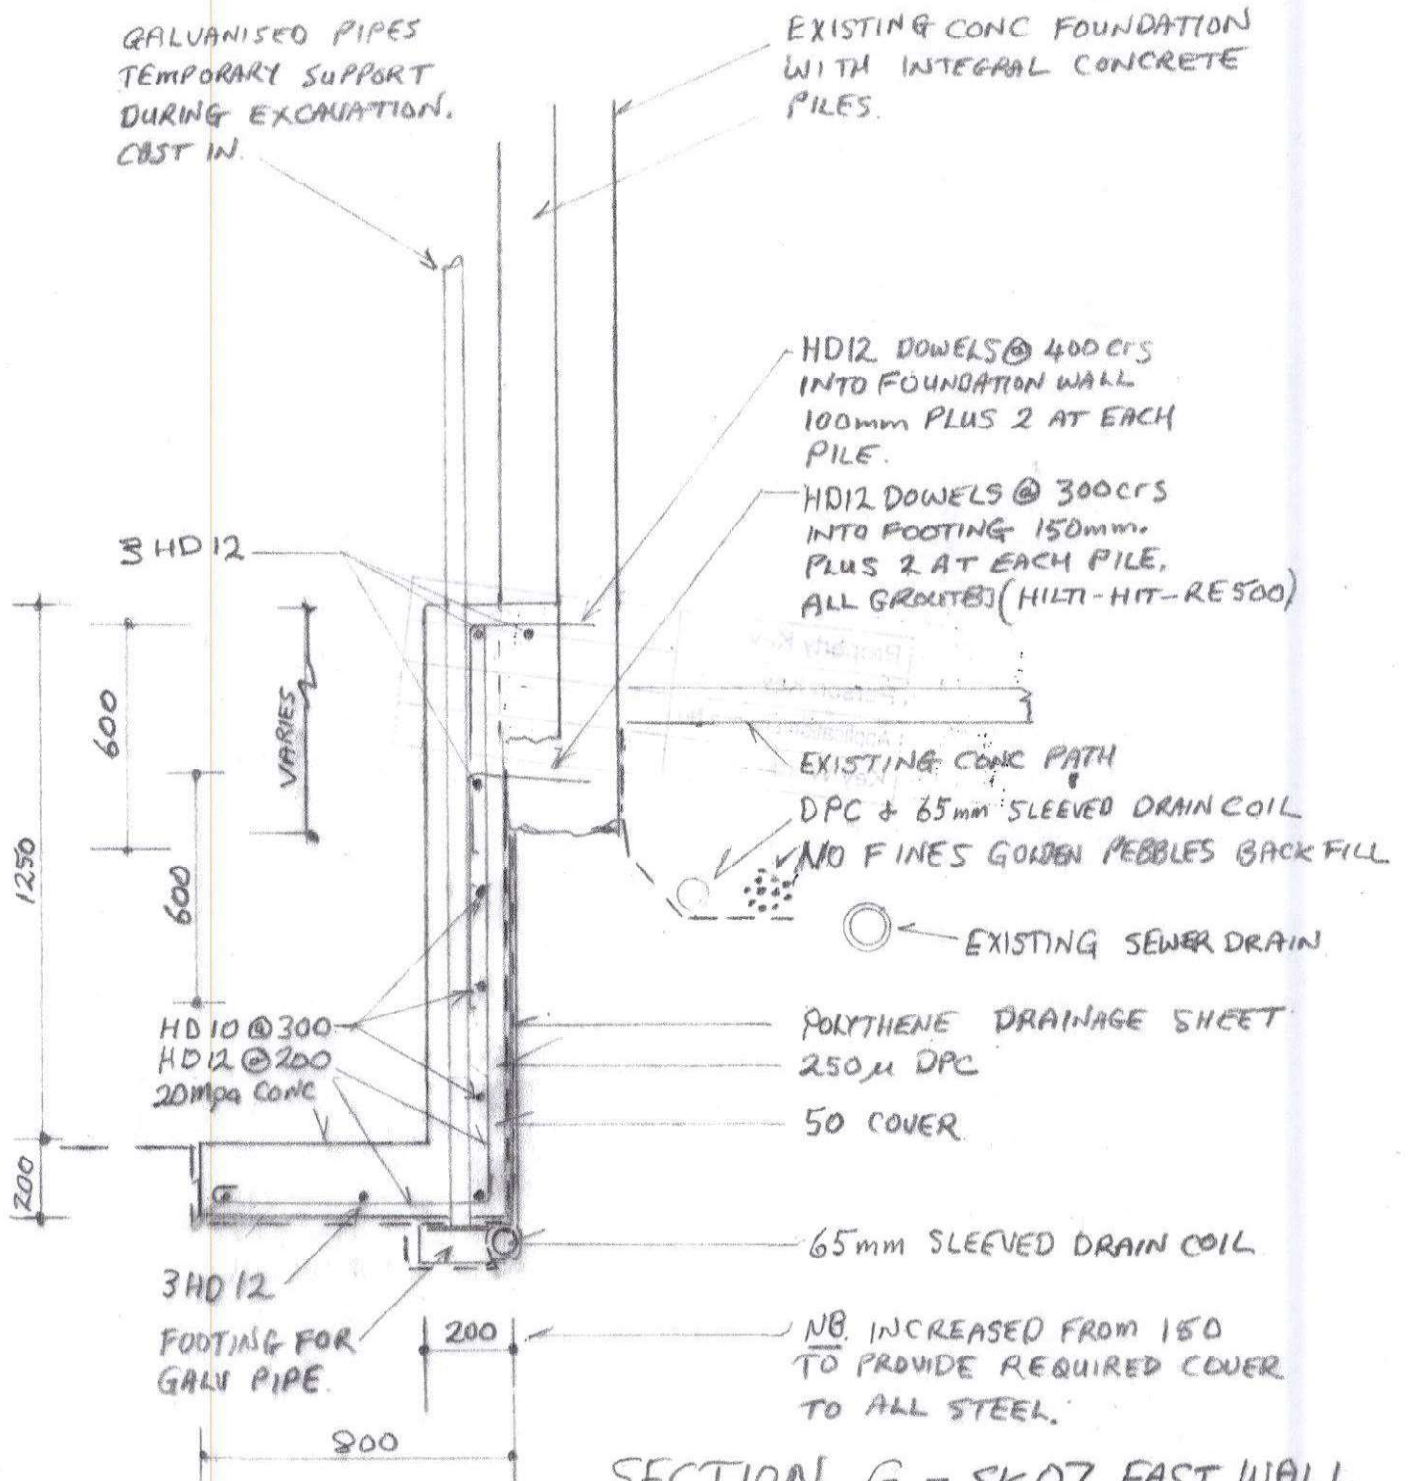 GALVANISED PIPES
TEMPORARY SUPPORT
DURING EXCAVATION.
CAST IN.
EXISTING CONC FOUNDATION
WITH INTEGRAL CONCRETE
PILES.
HD12 DOWELS @ 400 crs
INTO FOUNDATION WALL
100mm PLUS 2 AT EACH
PILE.
HD12 DOWELS @ 300 crs
INTO FOOTING 150mm.
PLUS 2 AT EACH PILE.
ALL GROUTED (HILTI-HIT-RE500)
3 HD 12
600
VARIES
1250
600
EXISTING CONC PATH
DPC & 65mm SLEEVED DRAIN COIL
NO FINES GOLDEN PEBBLES BACK FILL
EXISTING SEWER DRAIN
HD10 @ 300
HD12 @ 200
20mpa CONC
POLYTHENE DRAINAGE SHEET
250µ DPC
50 COVER
200
65mm SLEEVED DRAIN COIL
3 HD 12
FOOTING FOR
GALV PIPE.
200
NB. INCREASED FROM 150
TO PROVIDE REQUIRED COVER
TO ALL STEEL.
800
SECTION G - SK07 EAST WALL